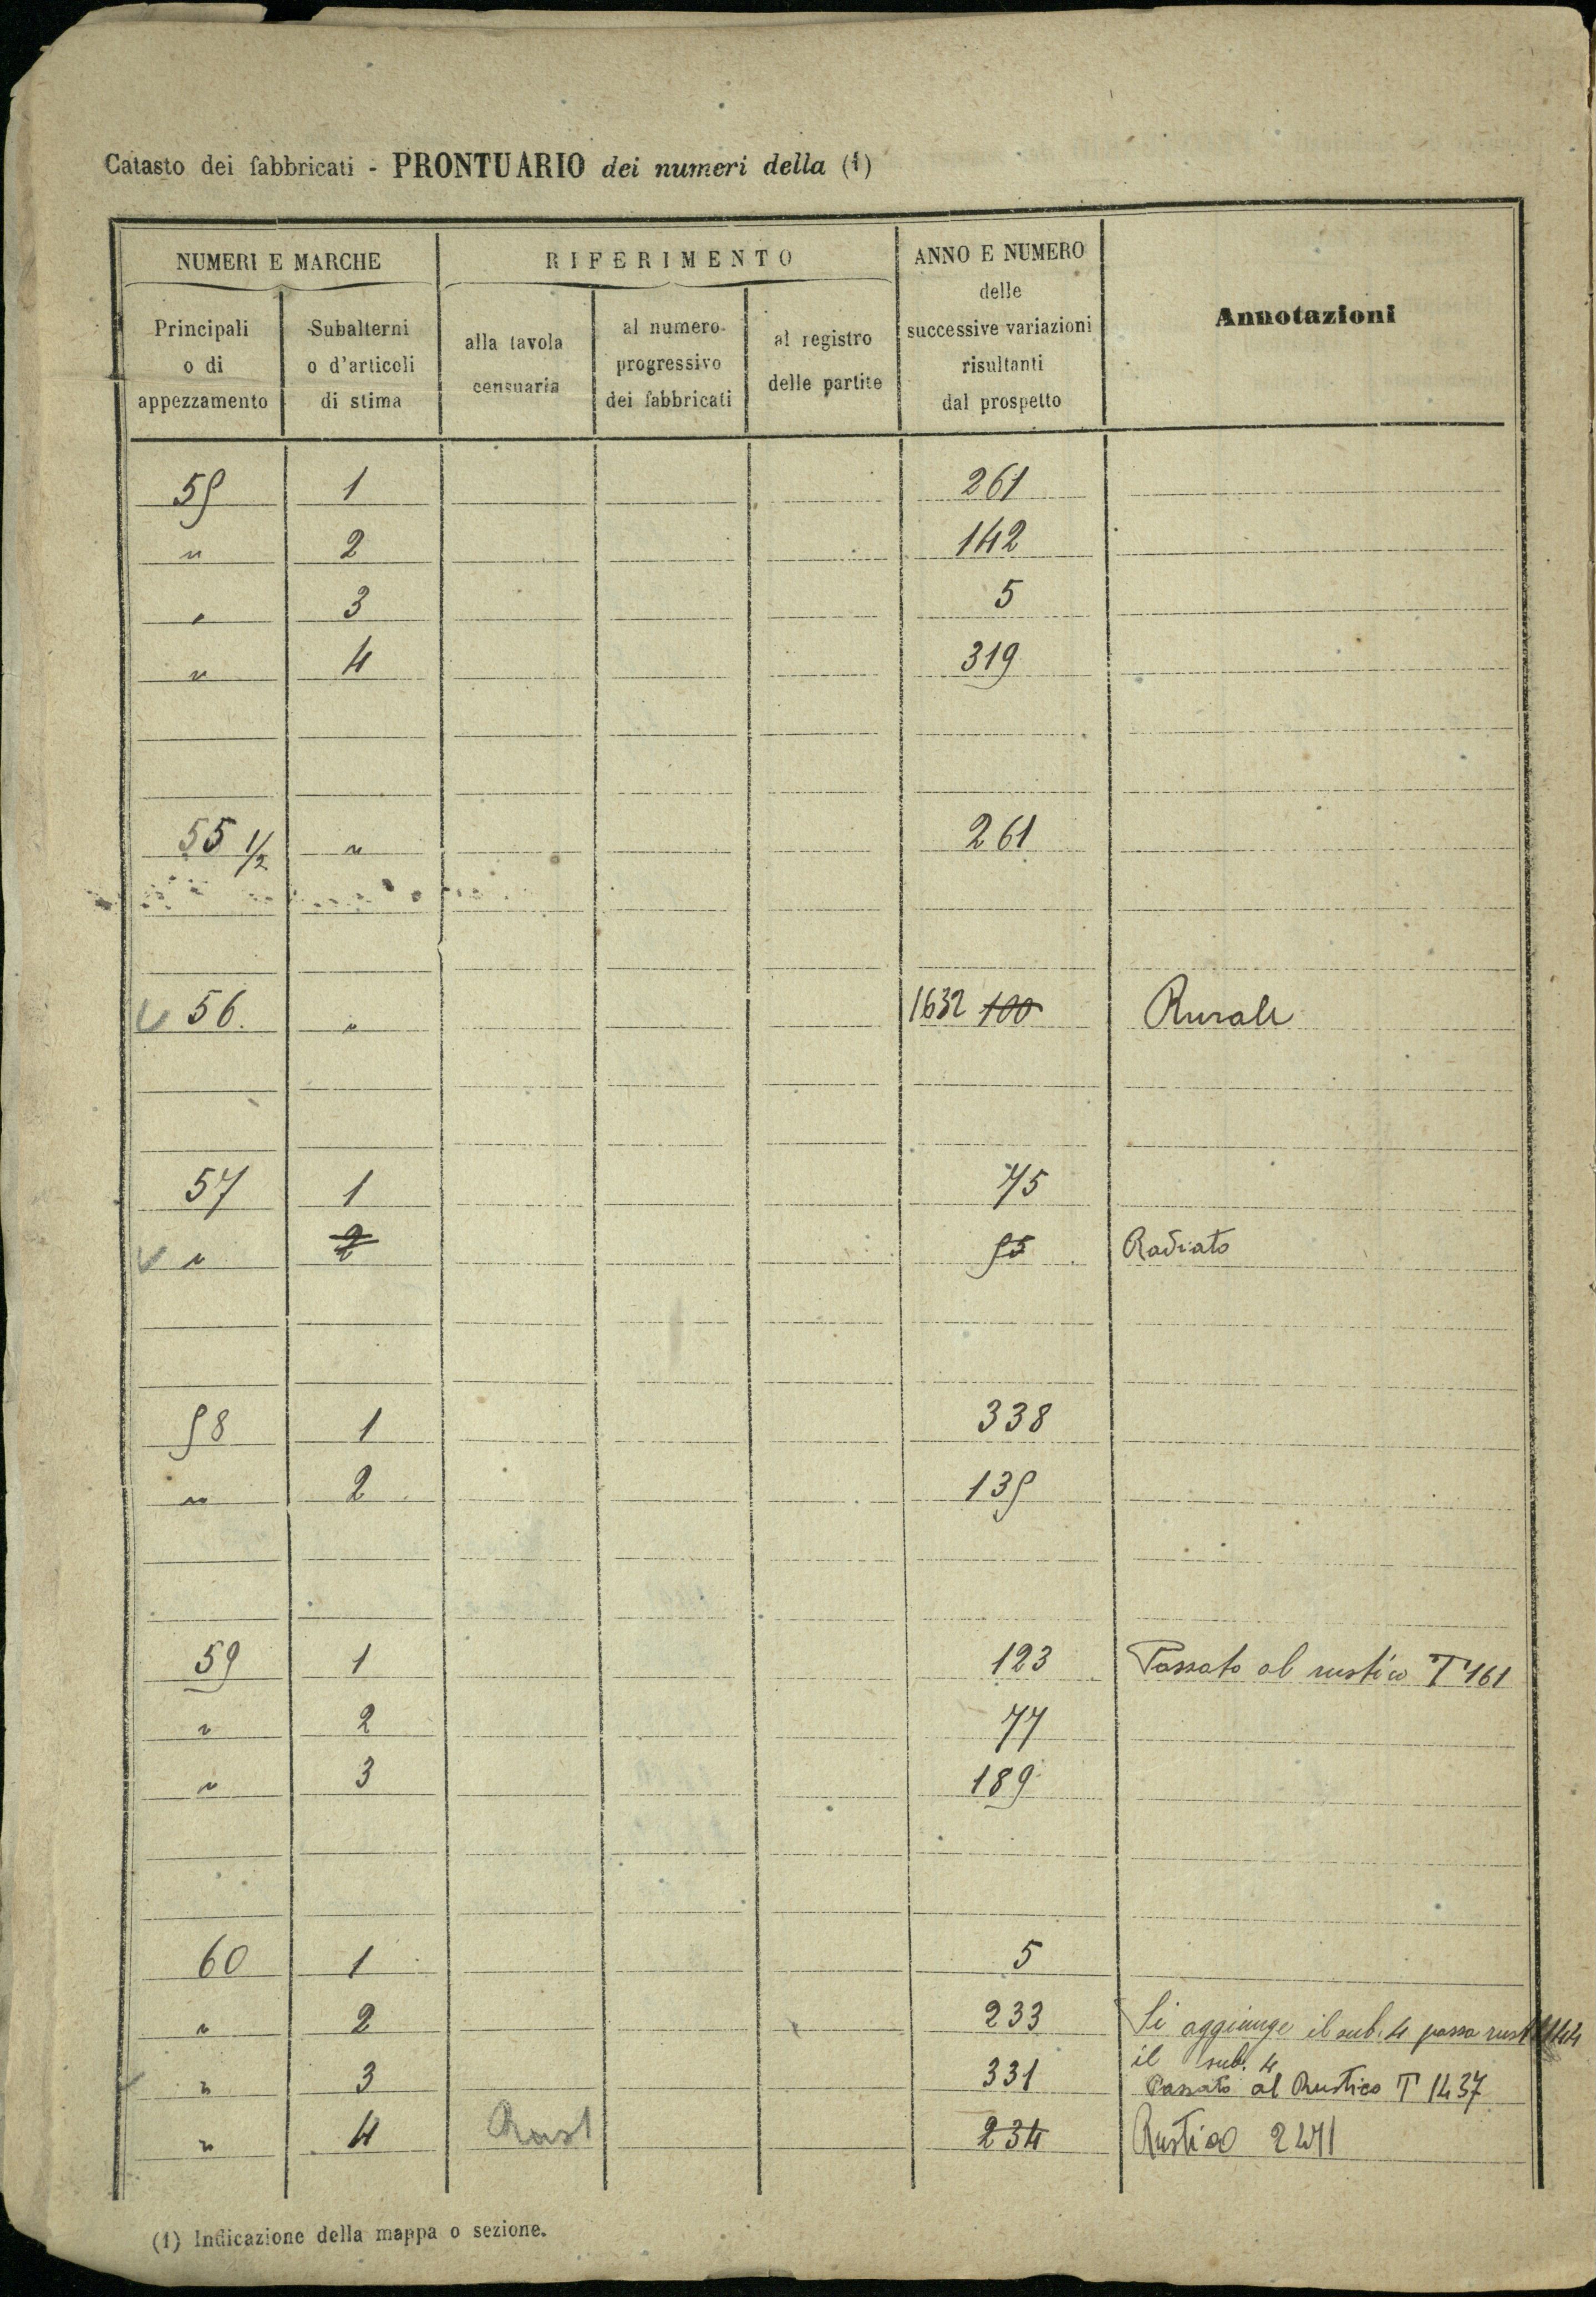 Catasto dei fabbricati - PRONTUARIO dei numeri della (1)
NUMERI E MARCHE
RIFERIMENTO
ANNO E NUMERO
delle
successive variazioni
risultanti
dal prospetto
Annotazioni
Principali
o di
appezzamento
Subalterni
o d'articoli
di stima
alla tavola
censuaria
al numero
progressivo
dei fabbricati
al registro
delle partite
55 1 261
" 2 142
" 3 5
" 4 319
55 1/2 " 261
56. " 1632 100 Rurale
57 1 75
" 2 55 Radiato
58 1 338
" 2 135
59 1 123 Passato al rustico T 161
" 2 77
" 3 189
60 1 5
" 2 233 Si aggiunge il sub. 4 passa rust
il sub. 4
" 3 331 Passato al Rustico T 1437
" 4 Rust 234 Rustico
(1) Indicazione della mappa o sezione.